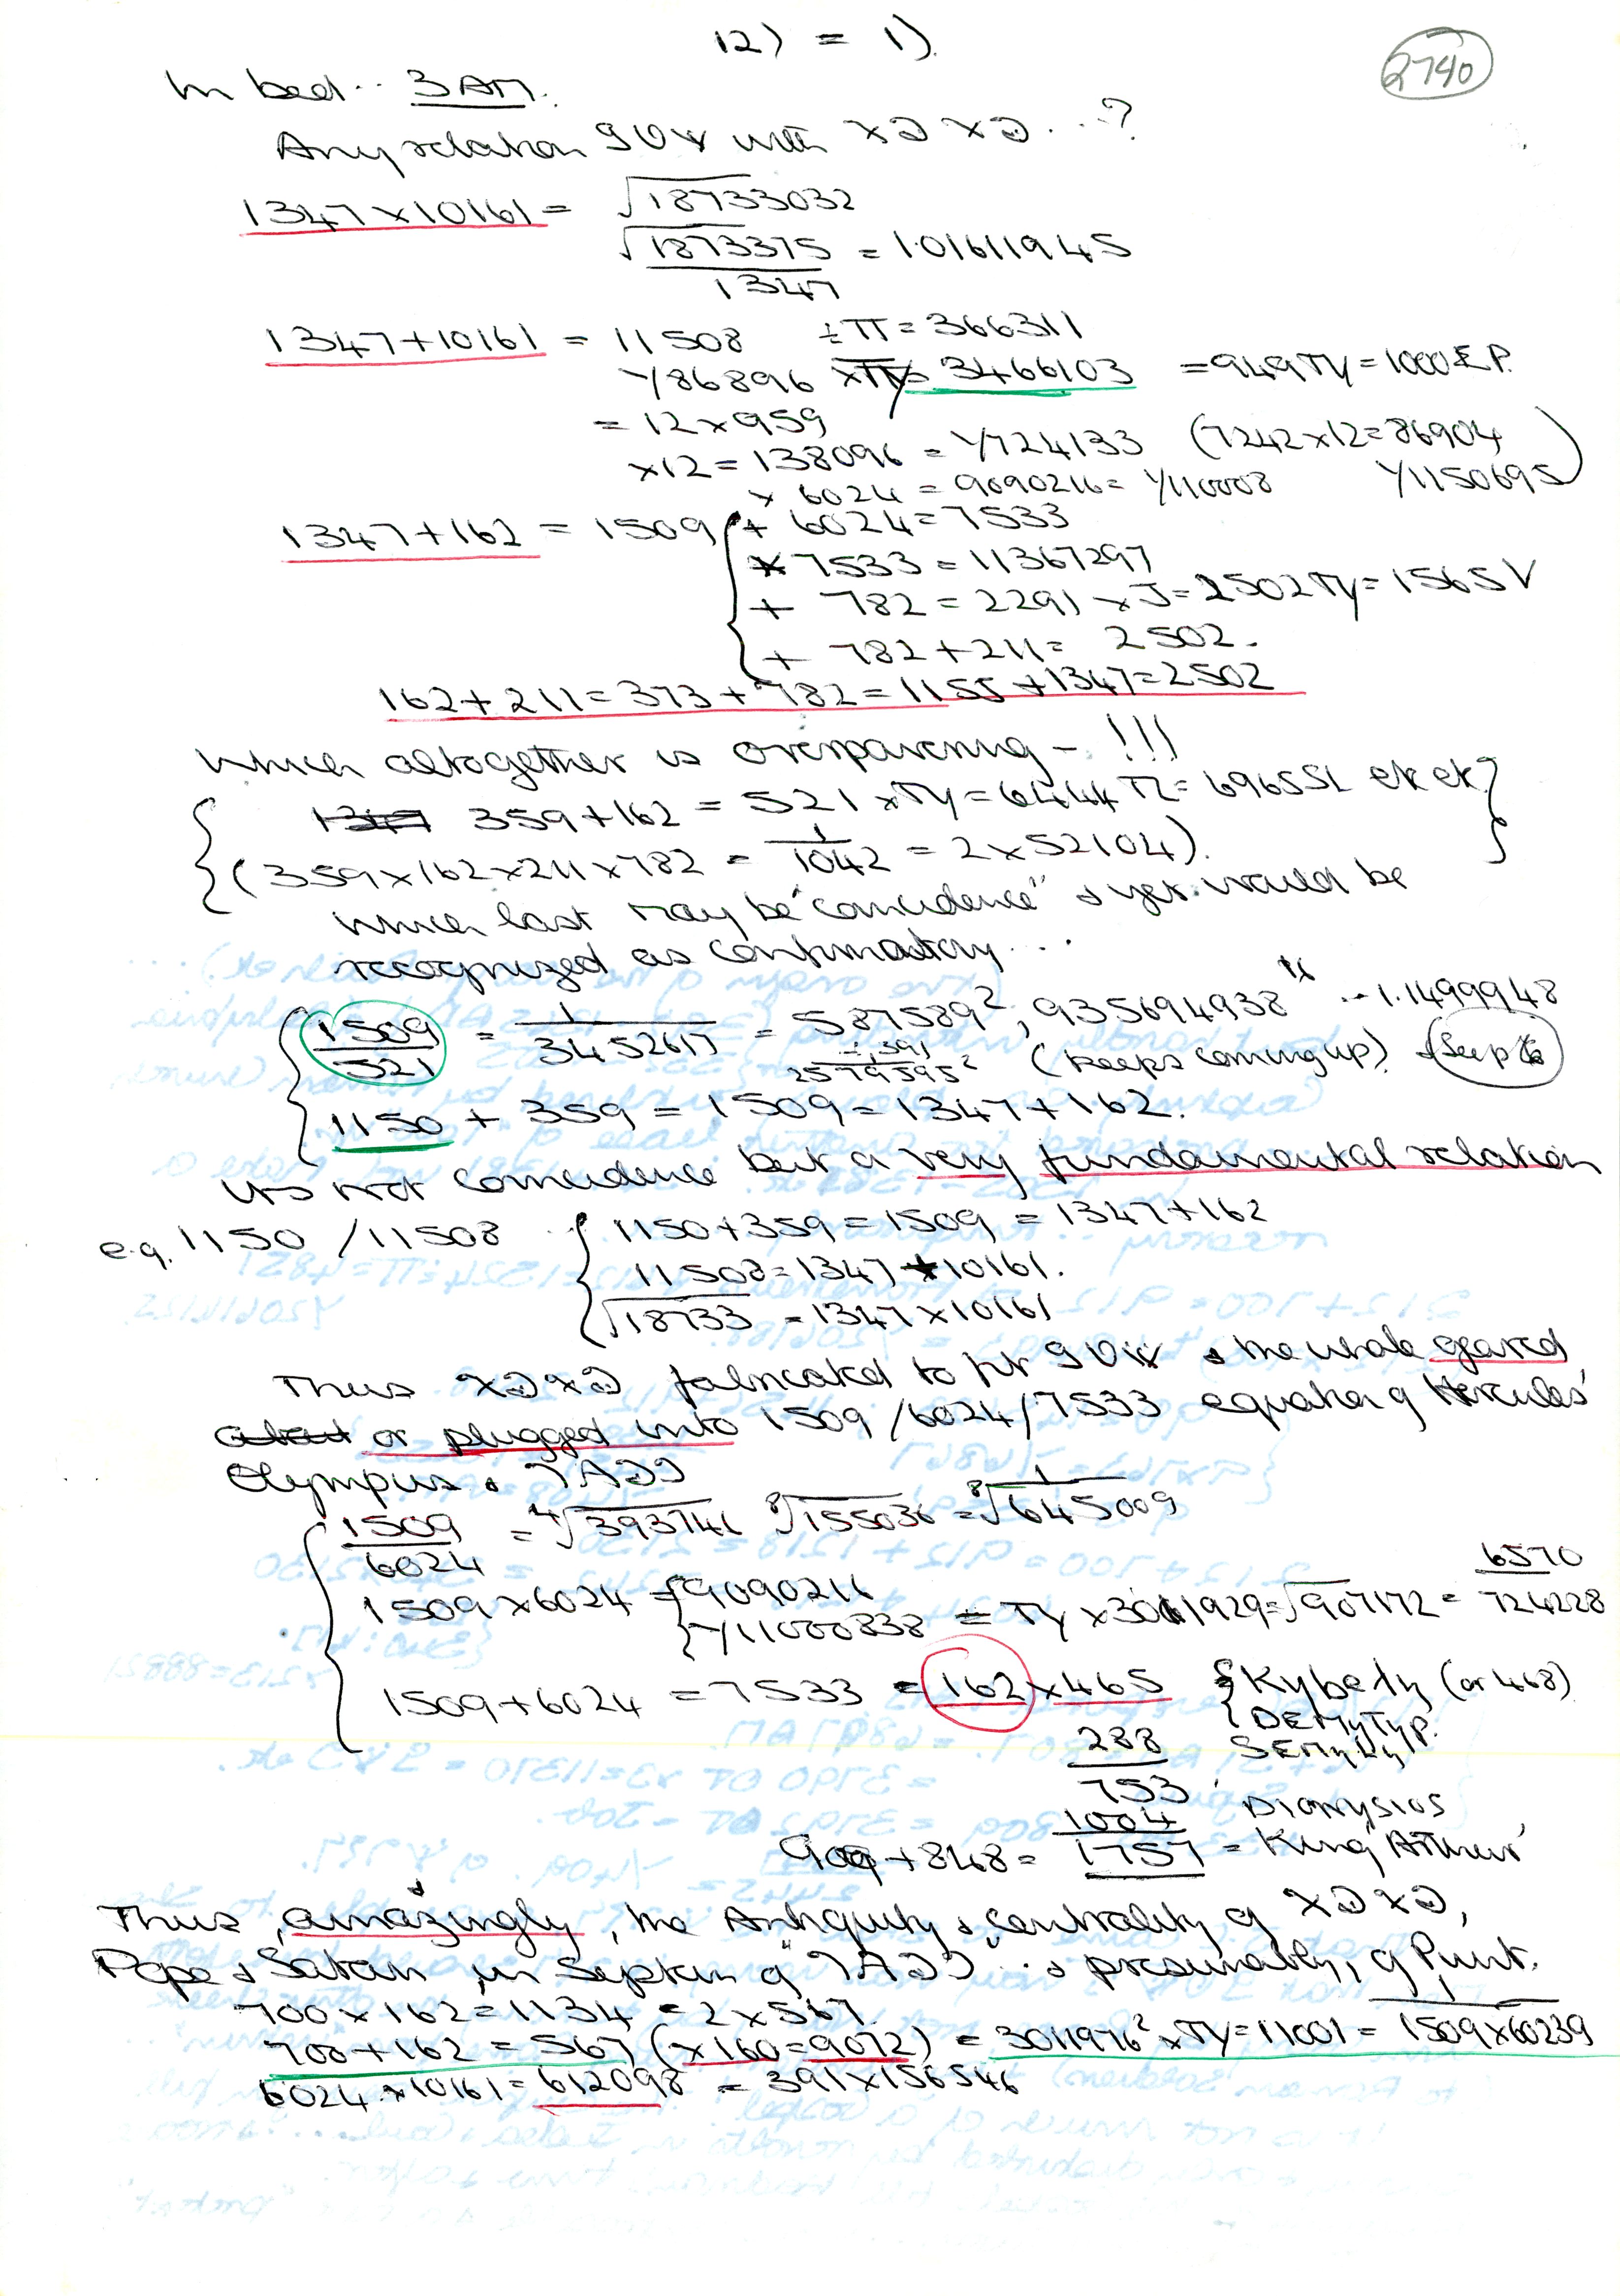 12) = 1).
2740
In bed.. 3 AM.
Any relation with ...?
1347 x 10161 = √18733032
√1873375 = 1.01611945
1347
1347 + 10161 = 11508 ÷ π = 366311
Y86896 = 3466103 = 949 = 1000 £P.
= 12 x 959
x 12 = 138096 = Y724133 (7242 x 12 = 86904
x 6024 = 9090216 = Y110008 Y1150695)
1347 + 162 = 1509 + 6024 = 7533
x 7533 = 11367297
+ 782 = 2291 x J = 2502 = 1565 V
+ 782 + 211 = 2502.
162 + 211 = 373 + 782 = 1155 + 1347 = 2502
Which altogether is overpowering - !!!
359 + 162 = 521 x = 6444 = 6965
(359 x 162 x 211 x 782 = 1/1042 = 2 x 52104).
which last may be "coincidence" & yet would be
recognized as confirmatory...
1509/521 = 1/3452617 = 587589², 935694938 .. 1.1499948
÷ 391
2579595² (keeps coming up)
1150 + 359 = 1509 = 1347 + 162.
Its not coincidence but a very fundamental relation
e.g. 1150 / 11508 1150 + 359 = 1509 = 1347 + 162
11508 = 1347 + 10161.
√18733 = 1347 x 10161
Thus fabricated to fit & the whole geared
or plugged into 1509 / 6024 / 7533 equation of Hercules'
Olympus &
1509/6024 = ⁴√393746 ⁸√155036 = ⁸√1/645009
1509 x 6024 = 9090216
Y11000838 = x 3011929 = √907172 = 6570/724228
1509 + 6024 = 7533 = 162 x 465 Kybely (or 468)
288
753 Dionysios
1004
909 + 848 = 1757 = 'King Arthur'
Thus, & amazingly, the Antiquity & centrality of ,
Pope & Satan in of " & presumably, of Punt.
700 x 162 = 1134 = 2 x 567
700 + 162 = 567 (x 160 = 9072) = 3011976² x = 11001 = 1/1509 x 60239
6024 x 10161 = 612098 = 391 x 156546